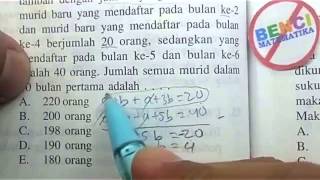 murid baru yang mendaftar pada bulan ke-2
dan murid baru yang mendaftar pada bulan
ke-4 berjumlah 20 orang, sedangkan yang
mendaftar pada bulan ke-5 dan bulan ke-6
adalah 40 orang. Jumlah semua murid dalam
10 bulan pertama adalah ....
A. 220 orang
B. 200 orang
C. 198 orang
D. 190 orang
E. 180 orang
b + a + 3b = 20
+ a + 5b = 40
5b = 20
b = 4
BENCI
MATEMATIKA